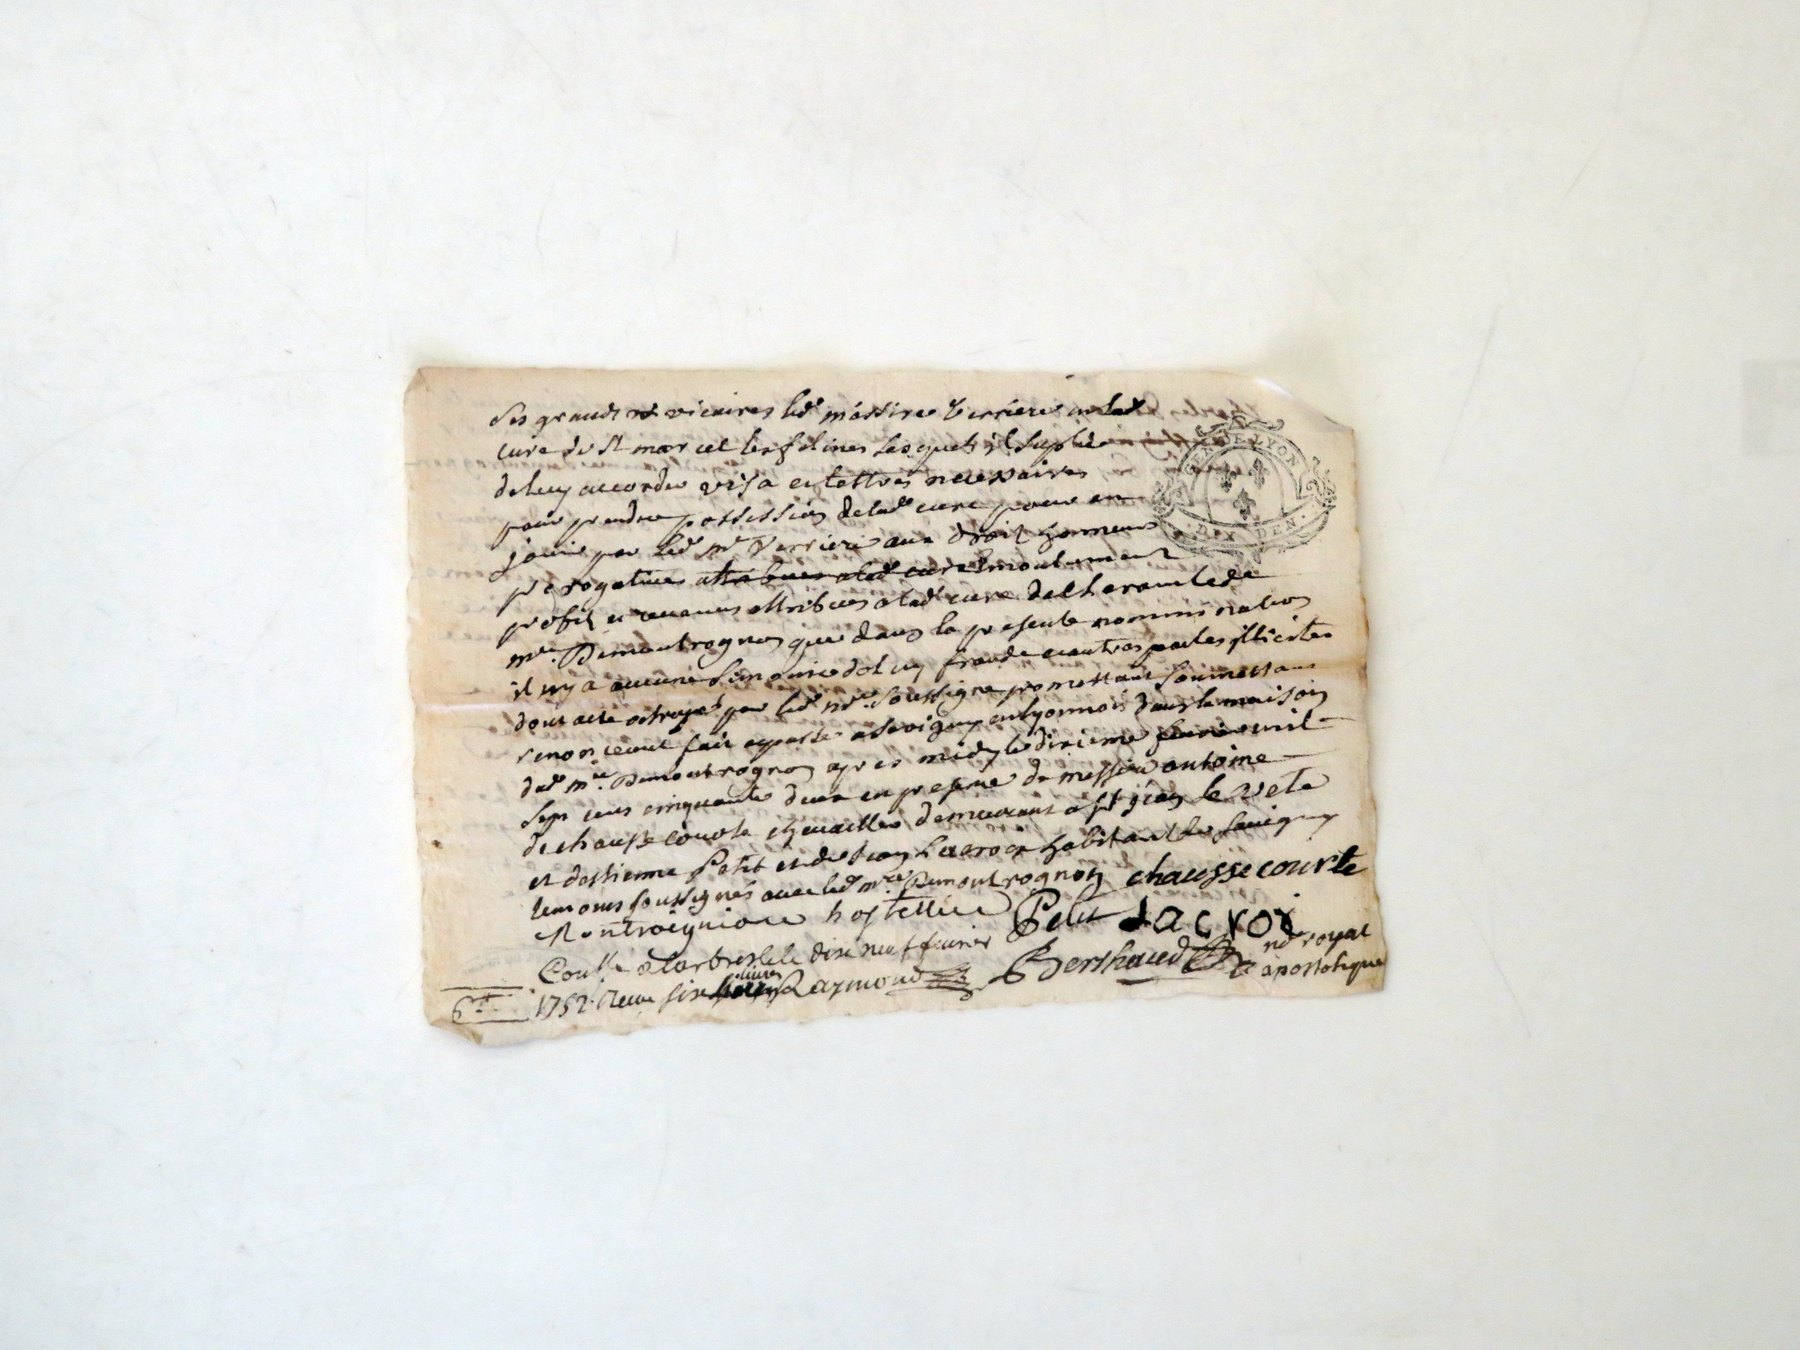 Ses grands vicaires led. messire Verriere
cure de St marcel les felines lesquels il suplie
de luy accorder visa et lettres necessaires
pour prendre possession de lad. cure pour en
jouir par led. mr Verriere aux droit honneurs
prerogatives attribues a lad. cure emoulument
profit et revenus attribues a lad. cure
mre. Demontrognon que dans la presente nomination
il ny a aucune simonie dol ny fraude autres pactes illicites
dont acte octroyé par led. nre. soussigne promettant soumettant
renonceant fait a Savigny en lyonnois dans la maison
dud. mre. Demontrognon apres midy le dixieme fevrier mil
sept cens cinquante deux en presence de messire antoine
de chaussecourte chevallier demeurant a st jean le vete
et destienne Petit et de Jean Lacroix habitant de Savigny
temoins soussignés avec led. mre. Demontrognon chaussecourte
Montroignion hostellier Petit Lacroi
Conlle a Larbresle le dix neuf fevrier Berthaud nre royal
6 lt 1752. Receu six livres Raymond apostolique
GEN DE LYON
DIX DEN.